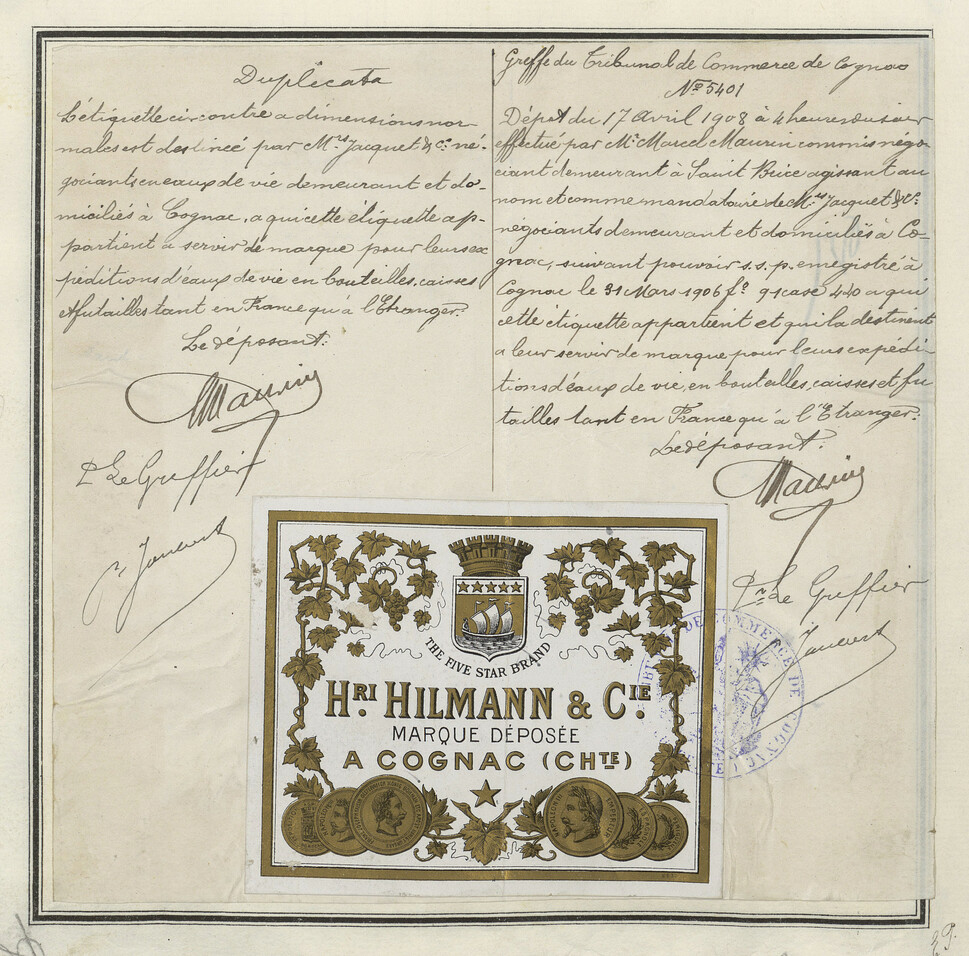 Duplicata
L'étiquette ci contre a dimensions nor-
males est destinée par Mrs Jacquet & Cie né-
gociants en eaux de vie demeurant et do-
miciliés à Cognac, a qui cette étiquette ap-
partient a servir de marque pour leurs ex
péditions d'eaux de vie en bouteilles, caisses
et futailles tant en France qu'à l'Etranger.
Le déposant.
Maurin
Pr Le Greffier
Greffe du Tribunal de Commerce de Cognac
No 5401
Dépot du 17 avril 1908 à 4 heures du soir
effectué par Mr Marcel Maurin commis négo-
ciant demeurant à Saint Brice agissant au
nom et comme mandataire de Mrs Jacquet & Cie
négociants demeurant et domiciliés à Co-
gnac, suivant pouvoir s.s.p. enregistré à
Cognac le 31 Mars 1906 fo 91 case 440 a qui
cette étiquette appartient et qui la destinent
a leur servir de marque pour leurs expédi-
tions d'eaux de vie, en bouteilles, caisses et fu
tailles tant en France qu'à l'Etranger.
Le déposant.
Maurin
Pr Le Greffier
THE FIVE STAR BRAND
HRI HILMANN & CIE
MARQUE DÉPOSÉE
A COGNAC (CHTE)
NAPOLEON III EMPEREUR
DE COMMERCE DE COGNAC